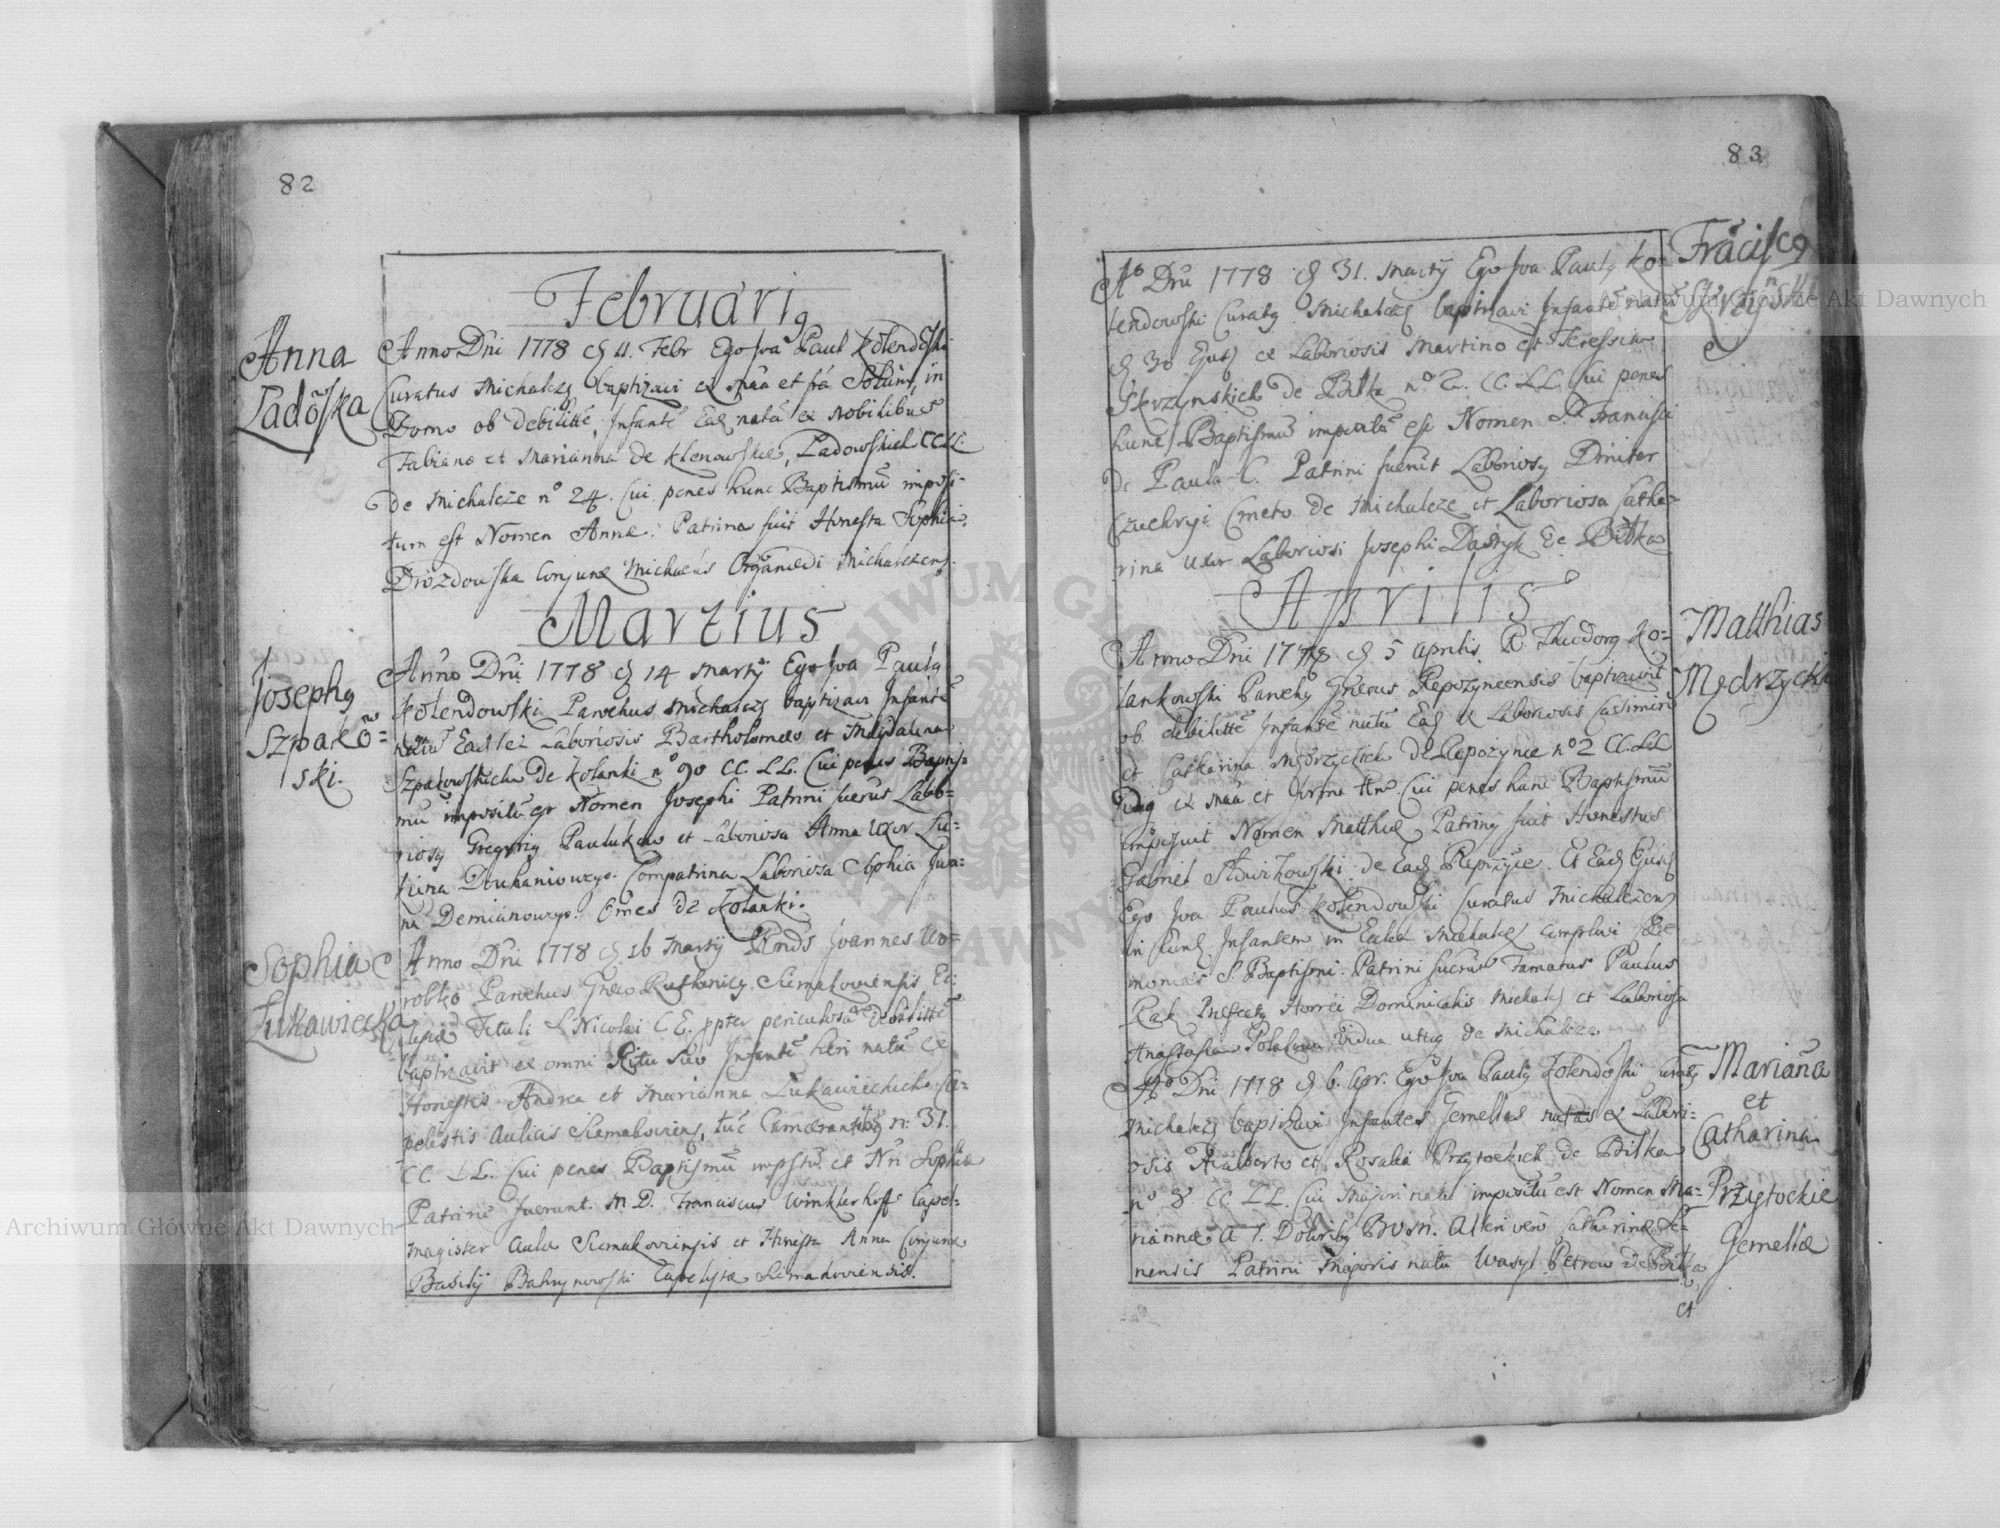 82
Februari9
Anna
Ladõska
Anno Dni 1778 d 11. Febr Ego Iva Paul Kolendõski
Curatus Michalcz baptizavi ex
Domo ob debilittē, Infantē Ead natā ex Nobilibus
Fabiano et Marianna de Klenowskie, Ladowskich CC LL
de Michalcze nº 24. Cui penes hunc Baptismū imposi-
tum est Nomen Annæ. Patrina fuit Honesta Sophia
Drozdowska Conjunx Michaelis Organœdi Michalczens.
Marzius
Josephg
Szpakõ=
ski.
Anno Dni 1778 d 14 Martij Ego Iva Paulg
Kolendowski Parochus Michalcz baptizavi Infantē
natū Ead ex Laboriosis Bartholomæo et Magdalena
Szpakowskich de Kolanki nº 90 CC. LL. Cui penes Baptis-
mū impositū est Nomen Josephi Patrini fuerūt Labo-
riosg Gregorig Paulukow et Laboriosa Anna Uxor Lu-
Compatrina Laboriosa Sophia Iwa-
na Demianowego. Omes de Kolanki.
Sophia
Łukawiecka
Anno Dni 1778 d 16 Martij Rnds Joannes Wo-
robko Parochus Græco Ruthenicg Siemakoviensis Ec-
clesiæ Tituli S Nicolai C E. ppter periculosā debilittē
baptizavit ex omni Ritu suo Infantē heri natū ex
Honestis Andrea et Marianna Łukawieckich Ca-
pelistis Aulicis Siemakoviens, tūc n: 31.
CC. LL. Cui penes Baptismū impstū e Nn Sophiæ
Patrini fuerunt. M. D. Franciscus Winklerhoff Capel-
magister Aulæ Siemakoviensis et Honesta Anna Conjunx
Basilij Bahrynowski Capelistæ Siemakoviensis.
83
Frãciscg
Skrzyñski
Aº Dni 1778 d 31. Martij Ego Iva Paulg Ko-
lendowski Curatg Michalcz baptizavi Infantē natū
d 30 Ejusd ex Laboriosis Martino et Teressia
Skrzynskich de Bilka nº 2. CC. LL. Cui penes
hunc Baptismū impositū est Nomen S. Francisci
de Paula C. Patrini fuerūt Laboriosg Dmiter
Czuchryi Cmeto de Michalcze et Laboriosa Catha-
rina Uxor Laboriosi Josephi de Bilka
Aprilis
Matthias
Mędrzycki
Anno Dni 1778 d 5 Aprilis R. Theodorg Ko-
lankowski Parochg Græcus Repozyncensis baptizavit
ob debilittē Infantē natū Ead ex Laboriosis Casimiro
et Catharina Mędrzyckich de Repozynce nº 2 CC. LL
Cui penes hunc Baptismū
imposuit Nomen Matthiæ Patring fuit Honestus
Gabriel de Ead Et Ead Ejusd
Ego Iva Paulus Kolendowski Curatus Michalczens
in Eund Infantem in Eccla Michalcz complevi Cære
monias S. Baptismi. Patrini fuerūt Famatus Paulus
Rak Præfectg Horrei Dominicalis Michalcz et Laboriosa
Anastasia Vidua de Michalcze
Mariaña
et
Catharina
Przytockie
Gemellæ
Aº Dni 1778 d 6. Apr. Ego Iva Paulg Kolendõski Curatg
Michalcz baptizavi Infantes Gemellas natas ex Labori-
osis Adalberto et Rosalia Przytockich de Bilka
nº 8 CC LL. Cui Majori natu impositū est Nomen Ma-
riannæ BVM. Alteri verò Catharinæ Se-
nensis Patrini Majoris natu Wasyl Petrow de Bilka
et
Archiwum Główne Akt Dawnych
Archiwum Główne Akt Dawnych